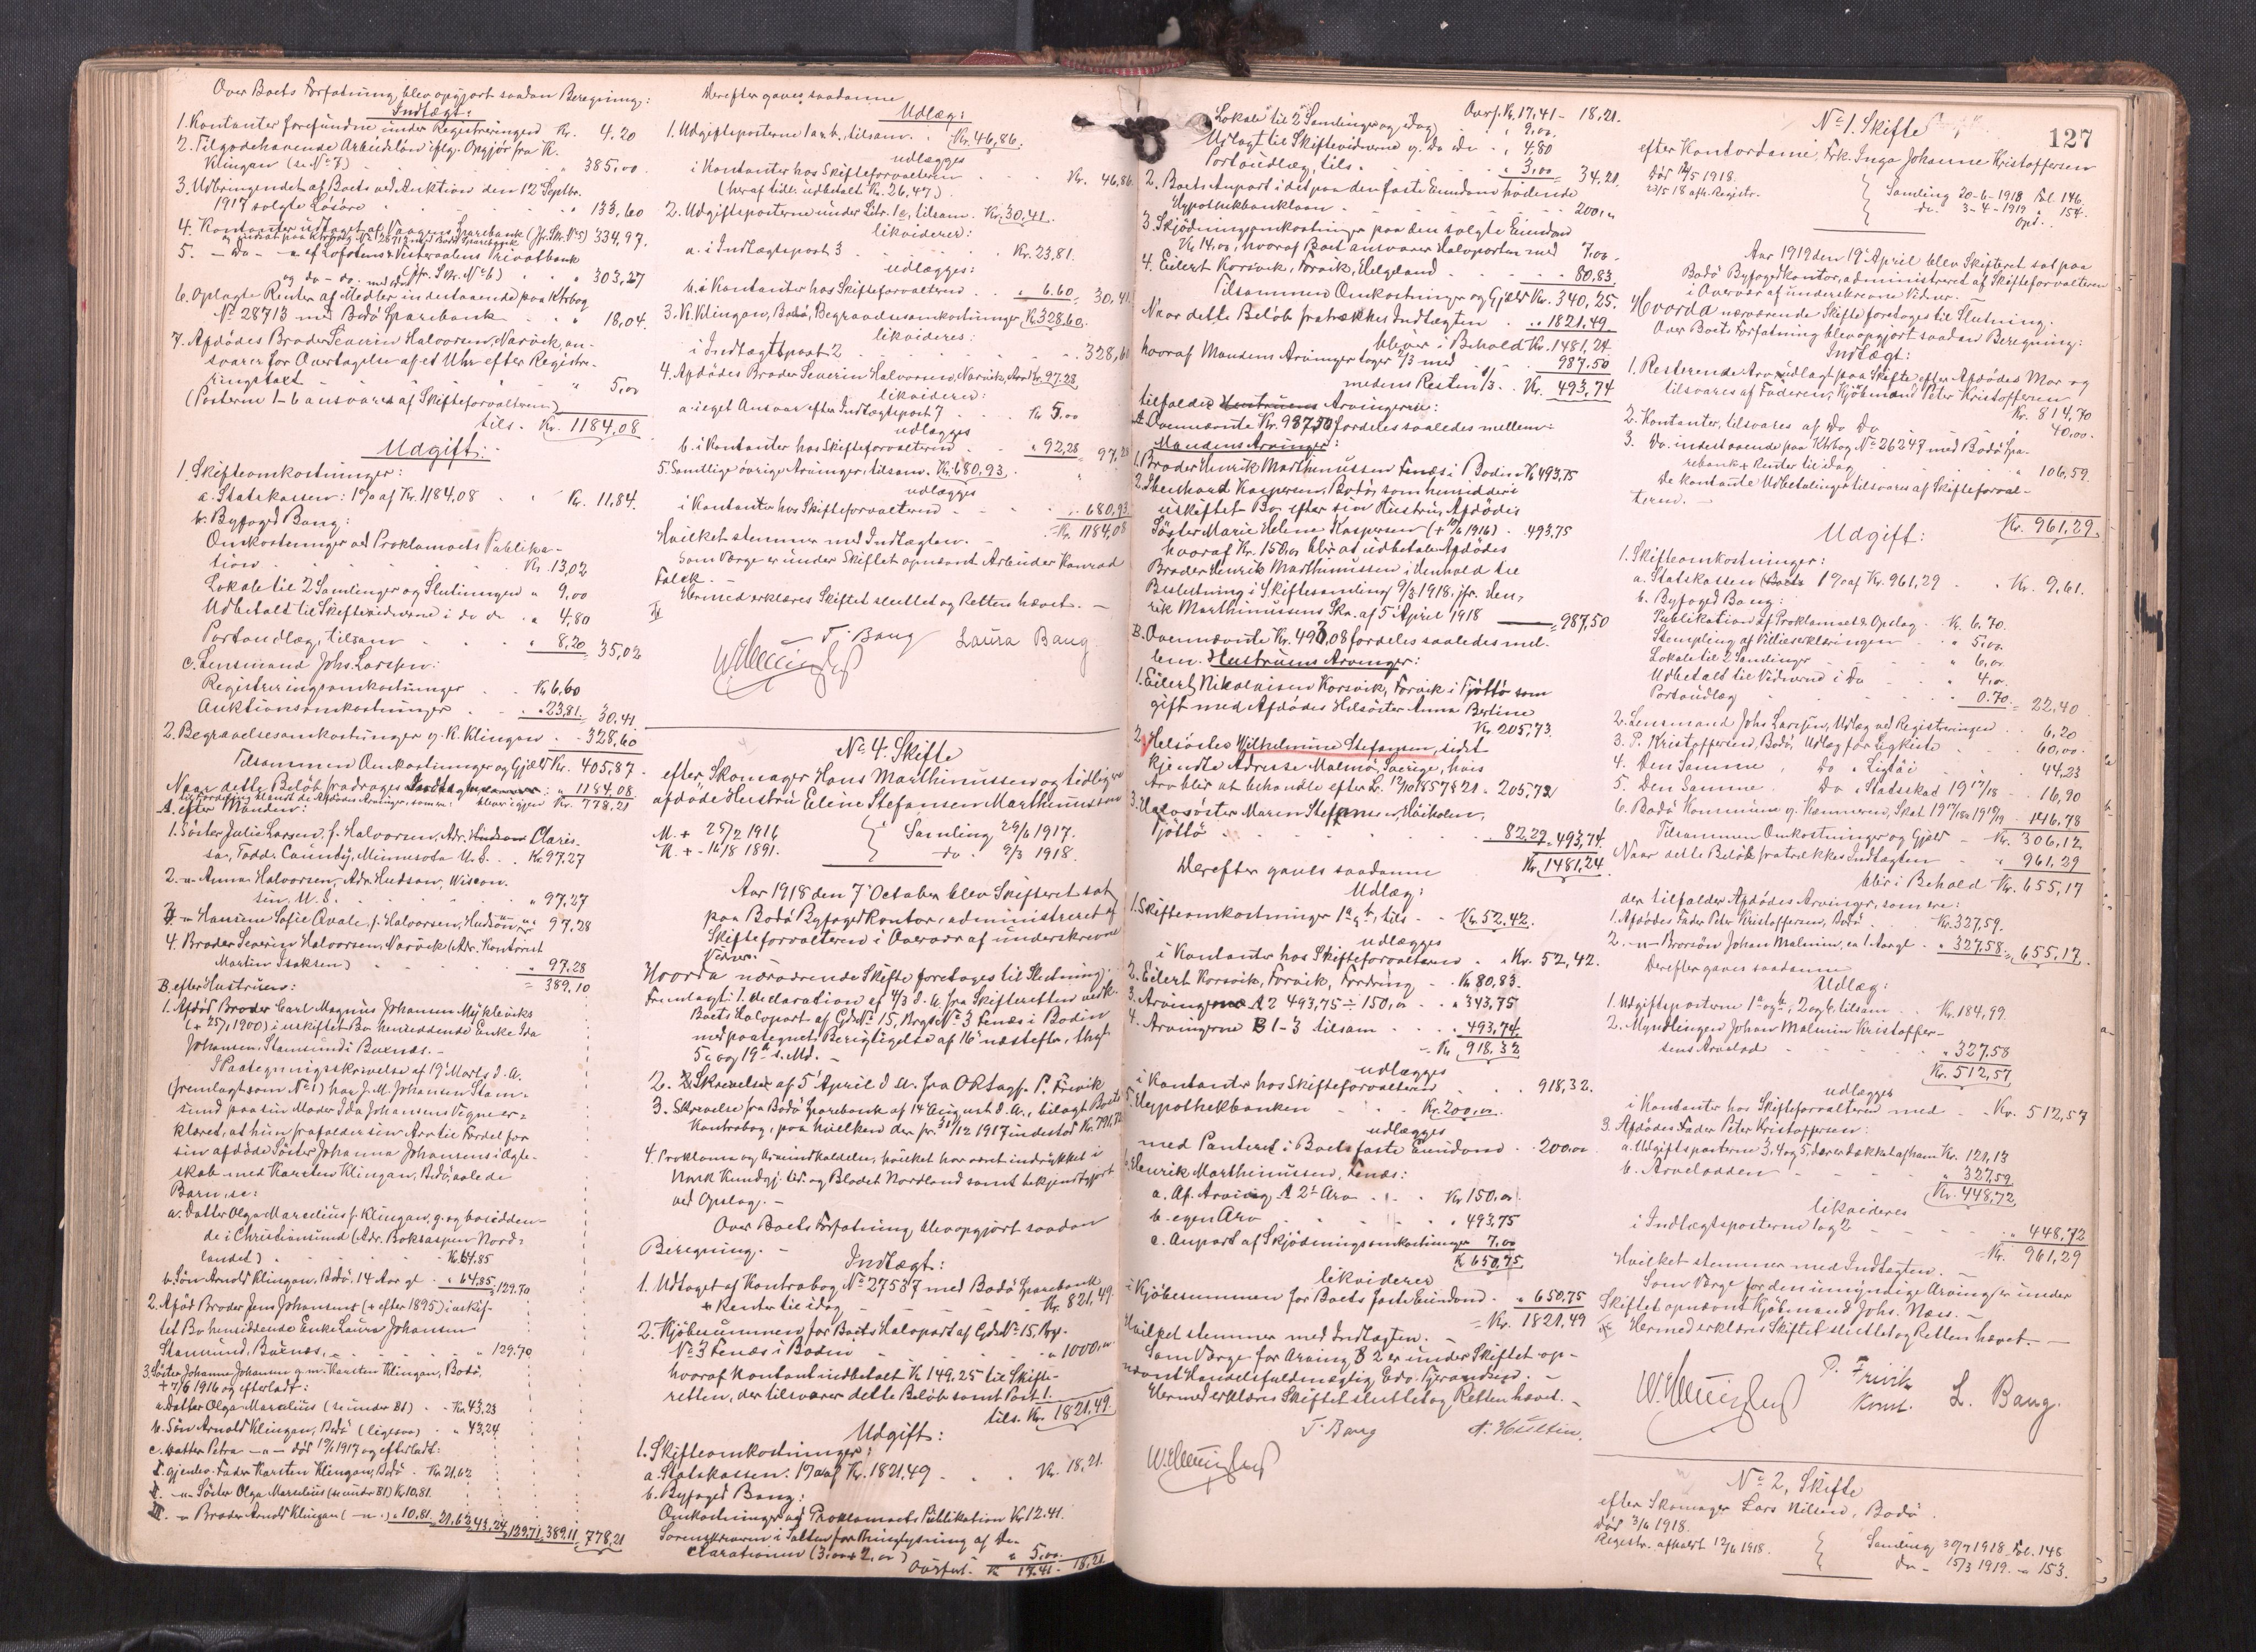 Over Boets Forfatning blev opgjort saadan Beregning:
Indtægt:
1. Kontanter forefundne under Registreringen Kr. 4,20
2. Tilgodehavende Arbeidsløn iflg. Opgjør fra K.
Klingan (se No 7) " 385,00
3. Udbringendet af Boets ved Auktion den 12 Septbr.
1917 solgte Løsøre " 133,60
4. Kontanter udtaget af Vaagens Sparebank (Jfr. Skr. No 5) 334,97.
5. - Do - af Lofotens & Vesteraalens Privatbank
og do - do. (Jfr. Skr. No 6) " 303,27
6. Oplagte Renter af Midler indestaaende paa Ktrbog
No 28713 med Bodø Sparebank " 18,04.
7. Afdødes Broder Severin Halvorsen, Narvik, an-
svarer for Overtagelse af et Uhr efter Registre-
ringstaxt " 5,00
(Posterne 1-6 ansvares af Skifteforvalteren)
tils. Kr. 1184,08
Udgift:
1. Skifteomkostninger:
a. Statskassen: 1% af Kr. 1184,08 Kr. 11,84.
b. Byfoged Bang:
Omkostninger ved Proklamaets Publika-
tion Kr. 13,02
Lokale til 2 Samlinger og Slutningen " 9,00
Udbetalt til Skiftevidnerne i do do " 4,80
Portoudlæg, tilsam " 8,20 = 35,02
c. Lensmand Johs. Larssen:
Registreringsomkostninger Kr. 6,60
Auktionsomkostninger " 23,81 = 30,41
2. Begravelsesomkostninger v. K. Klingan - 328,60
Tilsammen Omkostninger og Gjæld Kr. 405,87
Naar dette Beløb fradrages Indtægten " 1184,08
bliver igjen Kr. 778,21
A. efter Manden:
1. Søster Julie Larsen, f. Halvorsen, Adr. Claris-
sa, Todd County, Minnesota U.S. Kr. 97,27
2. -"- Anna Halvorsen, Adr. Hudson, Wiscon-
sin, U.S. " 97,27
3. -"- Hansine Sofie Qvale, f. Halvorsen, Hudson " 97,28
4. Broder Severin Halvorsen, Narvik (Adr. Kontorist
Martin Isaksen) " 97,28
= 389,10
B. efter Hustruen:
1. Afdød Broder Carl Magnus Johansen Myklevik
(+ 25/1 1900) i uskiftet Bo hensiddende Enke Ida
Johansen, Stamsund i Buxnæs.
I Paategningsskrivelse af 19 Marts d. A.
(fremlagt som No 1) har J. M. Johansen Stam-
sund paa sin Moder Ida Johansens Vegne er-
klæret, at hun frafalder sin Arv til Fordel for
sin afdøde Søster Johanna Johansens i Ægte-
skab med Karsten Klingan, Bodø, avlede
Barn, se:
a. Datter Olga Marcelius f. Klingan, g. og bosidden-
de i Christiansund (Adr. Nord-
landet) Kr. 64,85
b. Søn Arnold Klingan, Bodø, 14 Aar gl. " 64,85 = 129,70
2. Afdød Broder Jens Johansens (+ efter 1895) i uskif-
tet Bo hensiddende Enke Laura Johansen
Stamsund, Buxnæs, " 129,70
3. Søster Johanna Johansen g. m. Karsten Klingan, Bodø,
+ 7/6 1916 og efterladt:
a. Datter Olga Marcelius (se under B1) Kr. 43,23
b. Søn Arnold Klingan, Bodø (ligesaa) " 43,24
c. Datter Petra -"- død 19/6 1917 og efterladt:
I. gjenlev. Fader Karsten Klingan, Bodø Kr. 21,62
II. -"- Søster Olga Marcelius (se under B1) Kr. 10,81.
III. -"- Broder Arnold Klingan (-"-) " 10,81 = 21,62 43,24 129,71 389,11 778,21
Derefter gaves saadanne
Udlæg:
1. Udgiftsposterne 1 a & b, tilsam. Kr. 46,86.
udlægges
i Kontanter hos Skifteforvalteren Kr. 46,86.
(heraf tidl. udbetalt Kr. 26,47)
2. Udgiftsposterne under Litr. 1c, tilsam. Kr. 30,41.
likvideres:
a. i Indtægtspost 3 Kr. 23,81.
udlægges:
b. i Kontanter hos Skifteforvalteren " 6,60 = 30,41
3. K. Klingan, Bodø, Begravelsesomkostninger Kr. 328,60.
likvideres:
i Indtægtspost 2 328,60
4. Afdødes Broder Severin Halvorsen, Narvik, Arv Kr. 97,28
likviderer:
a. i eget Ansvar efter Indtægtspost 7 Kr. 5,00
udlægges
b. i Kontanter hos Skifteforvalteren " 92,28 = 97,28
5. Samtlige øvrige Arvinger, tilsam. Kr. 680,93.
udlægges
i Kontanter hos Skifteforvalteren " 680,93
Kr. 1184,08
Hvilket stemmer med Indtægten.
Som Værge er under Skiftet opnævnt Arbeider Konrad
Falck.
Hermed erklæres Skiftet sluttet og Retten hævet.
T. Bang Laura Bang
No 4. Skifte
efter Skomager Hans Marthinussen og tidligere
afdøde Hustru Eline Stefansen Marthinussen
M. + 25/2 1916 Samling 29/6 1917.
H. + 16/8 1891. do. 9/3 1918.
Aar 1918 den 7 October blev Skifteret sat
paa Bodø Byfogedkontor, administreret af
Skifteforvalteren i Overvær af underskrevne
Vidner.
Hvorda nærværende Skifte foretoges til Slutning.
Fremlagt: 1. Declaration af 4/3 d. A. fra Skifteretten vedk.
Boets Halvpart af Gds No 15, Brgs No 3 Fenæs i Bodin
med paategnet Berigtigelse af 16 næstefter, thgl.
5 og 19 s. Md.
2. Skrivelse af 5 April d. A. fra ORsagf. P. Frivik
3. Skrivelse fra Bodø Sparebank af 14 August d. A., bilagt Boets
Kontrabog, paa hvilken der pr. 31/12 1917 indestod Kr. 791,72
4. Proklama og Arveindkaldelse, hvilket har været indrykket i
Norsk Kundgj. tid. og Bladet Nordland samt bekjendtgjort
ved Opslag.
Over Boets Forfatning blev opgjort saadan
Beregning.
Indtægt:
1. Udtaget af Kontrabog No 27537 med Bodø Sparebank
+ Renter til idag Kr. 821,49
2. Kjøbesummen for Boets Halvpart af Gds No 15, Brgs.
No 3 Fenæs i Bodin " 1000,00
hvoraf kontant indbetalt Kr. 149,25 til Skifte-
retten, der tilsvarer dette Beløb samt Post 1.
tils. Kr. 1821,49.
Udgift:
1. Skifteomkostninger:
a. Statskassen: 1% af Kr. 1821,49 Kr. 18,21.
b. Byfoged Bang:
Omkostninger ved Proklamaets Publikation Kr. 12,41.
Sorenskriveren i Salten for Thinglysning af De-
clarationen (3,00 + 2,00) " 5,00.
Overført Kr. 17,41 - 18,21
Overf. Kr. 17,41 - 18,21.
Lokale til 2 Samlinger og idag " 9,00.
Udlagt til Skiftevidnerne v. Do Do " 4,80
Portoudlæg, tils. " 3,00 = 34,21.
2. Boets Anpart i det paa den faste Eiendom hvilende
Hypothekbanklaan 200,00
3. Skjødningsomkostninger paa den solgte Eiendom
Kr. 14,00, hvoraf Boet ansvarer Halvparten med 7,00
4. Eilert Korsvik, Forvik, Helgeland 80,83.
Tilsammen Omkostninger og Gjæld Kr. 340,25.
Naar dette Beløb fratrækkes Indtægten " 1821,49
bliver i Behold Kr. 1481,24
hvoraf Mandens Arvinger tager 2/3 med 987,50
medens Resten 1/3 Kr. 493,74
tilfalder Hustruens Arvingerne:
A. Ovennævnte Kr. 987,50 fordeles saaledes mellem
Mandens Arvinger:
1. Broder Henrik Marthinussen Fenæs i Bodin Kr. 493,75
2. Eberhard Kaspersen, Bodø, som hensidder i
uskiftet Bo efter sin Hustru, Afdødes
Søster Marie Helene Kaspersen (+ 10/6 1916) 493,75
hvoraf Kr. 150,00 blir at udbetale Afdødes
Broder Henrik Marthinussen i Henhold til
Beslutning i Skiftesamling 9/3 1918, jfr. Hen-
rik Marthinussens Skr. af 5 April 1918 987,50
B. Ovennævnte Kr. 493,08 fordeles saaledes mel-
lem Hustruens Arvinger:
1. Eilert Nikolaisen Korsvik, Forvik i Tjøttø som
gift med Afdødes Helsøster Anna Bertine
Kr. 205,73.
2. Helsøster Wilhelmine Stefansen, sidst
kjendte Adresse Malmø, Sverige, hvis
Arv blir at behandle efter L. 12/10 1857 § 21 - 205,72
3. Halvsøster Maren Stefansen, Høiholm,
Tjøttø 82,29 = 493,74.
Kr. 1481,24
Derefter gaves saadanne
Udlæg:
1. Skifteomkostninger 1 a & b, tils. Kr. 52,42.
udlægges
i Kontanter hos Skifteforvalteren Kr. 52,42.
2. Eilert Korsvik, Forvik, Fordring Kr. 80,83.
3. Arving A2 493,75 ÷ 150,00 " 343,75
4. Arvingerne B 1-3 tilsam " 493,74
= Kr. 918,32
udlægges
i Kontanter hos Skifteforvalteren 918,32.
5. Hypothekbanken Kr. 200,00.
udlægges
med Panteret i Boets faste Eiendom 200,00
6. Henrik Marthinussen, Fenæs:
a. Af Arving A 2's Arv Kr. 150,00
b. egen Arv " 493,75
c. Anpart af Skjødningsomkostninger 7,00
Kr. 650,75
likviderer
i Kjøbesummen for Boets faste Eiendom " 650,75
= Kr. 1821,49
Hvilket stemmer med Indtægten.
Som Værge for Arving B 2 er under Skiftet op-
nævnt Handelsfuldmægtig Edv.
Hermed erklæres Skiftet sluttet og Retten hævet.
T. Bang A. Hultin.
127
No 1. Skifte
efter Kontordame, Frk. Inga Johanne Kristoffersen
Død 14/5 1918.
23/5 18 afh. Registr.
Samling 20-6-1918 Fol. 146.
do. 3-4-1919 " 154.
Aar 1919 den 19 April blev Skifteret sat paa
Bodø Byfogedkontor, administreret af Skifteforvalteren
i Overvær af underskrevne Vidner.
Hvorda nærværende Skifte foretoges til Slutning.
Over Boets Forfatning blev opgjort saadan Beregning:
Indtægt:
1. Resterende Arv udlagt paa Skifte efter Afdødes Mor og
tilsvares af Faderen, Kjøbmand Peter Kristoffersen
Kr. 814,70
2. Kontanter, tilsvares af Do Do " 40,00.
3. Do. indestaaende paa Ktrbog No 26247 med Bodø Spa-
rebank + Renter til idag " 106,59.
De kontante Udbetalinger tilsvares af Skifteforval-
teren.
Kr. 961,29.
Udgift:
1. Skifteomkostninger:
a. Statskassen 1% af Kr. 961,29 Kr. 9,61.
b. Byfoged Bang:
Publikation af Proklamaet & Opslag Kr. 6,70.
Stempling af Vilieserklæringen " 5,00.
Lokale til 2 Samlinger " 6,00.
Udbetalt til Vidnerne i Do " 4,00.
Portoudlæg 0,70 = 22,40
2. Lensmand Johs Larssen, Udlæg ved Registreringen 6,20
3. P. Kristoffersen, Bodø, Udlæg for Ligkiste 60,00.
4. Den Samme, Do " Ligtøi 44,23
5. Den Samme Do " Statsskat 1917/18 16,90
6. Bodø Kommune v. Kæmneren, Skat 1917/18 & 1918/19 146,78
Tilsammen Omkostninger og Gjæld Kr. 306,12
Naar dette Beløb fratrækkes Indtægten " 961,29
blir i Behold Kr. 655,17
der tilfalder Afdødes Arvinger, som ere:
1. Afdødes Fader Peter Kristoffersen, Bodø Kr. 327,59.
2. -"- Brorsøn Johan Malmin, en 1 Aar gl. " 327,58 = 655,17.
Derefter gaves saadanne
Udlæg:
1. Udgiftsposterne 1 a og b, 2 og 6, tilsam Kr. 184,99.
2. Myndlingen Johan Malmin Kristoffer-
sens Arvelod " 327,58
Kr. 512,57
udlægges
i Kontanter hos Skifteforvalteren med Kr. 512,57
3. Afdødes Fader Peter Kristoffersen:
a. Udgiftsposterne 3, 4 og 5, der er dækket af ham Kr. 121,13
b. Arvelodden " 327,59
Kr. 448,72
likvideres
i Indtægtsposterne 1 og 2 " 448,72
= Kr. 961,29
Hvilket stemmer med Indtægten.
Som Værge for den umyndige Arving er under
Skiftet opnævnt Kjøbmand Johs. Næss.
Hermed erklæres Skiftet sluttet og Retten hævet.
P. Frivik
Konst. L. Bang.
No 2, Skifte
efter Skomager Lars Nilsen, Bodø.
Død 3/6 1918.
Registr. afholdt 12/6 1918.
Samling 30/7 1918 Fol. 148
Do - 15/3 1919. " 153.